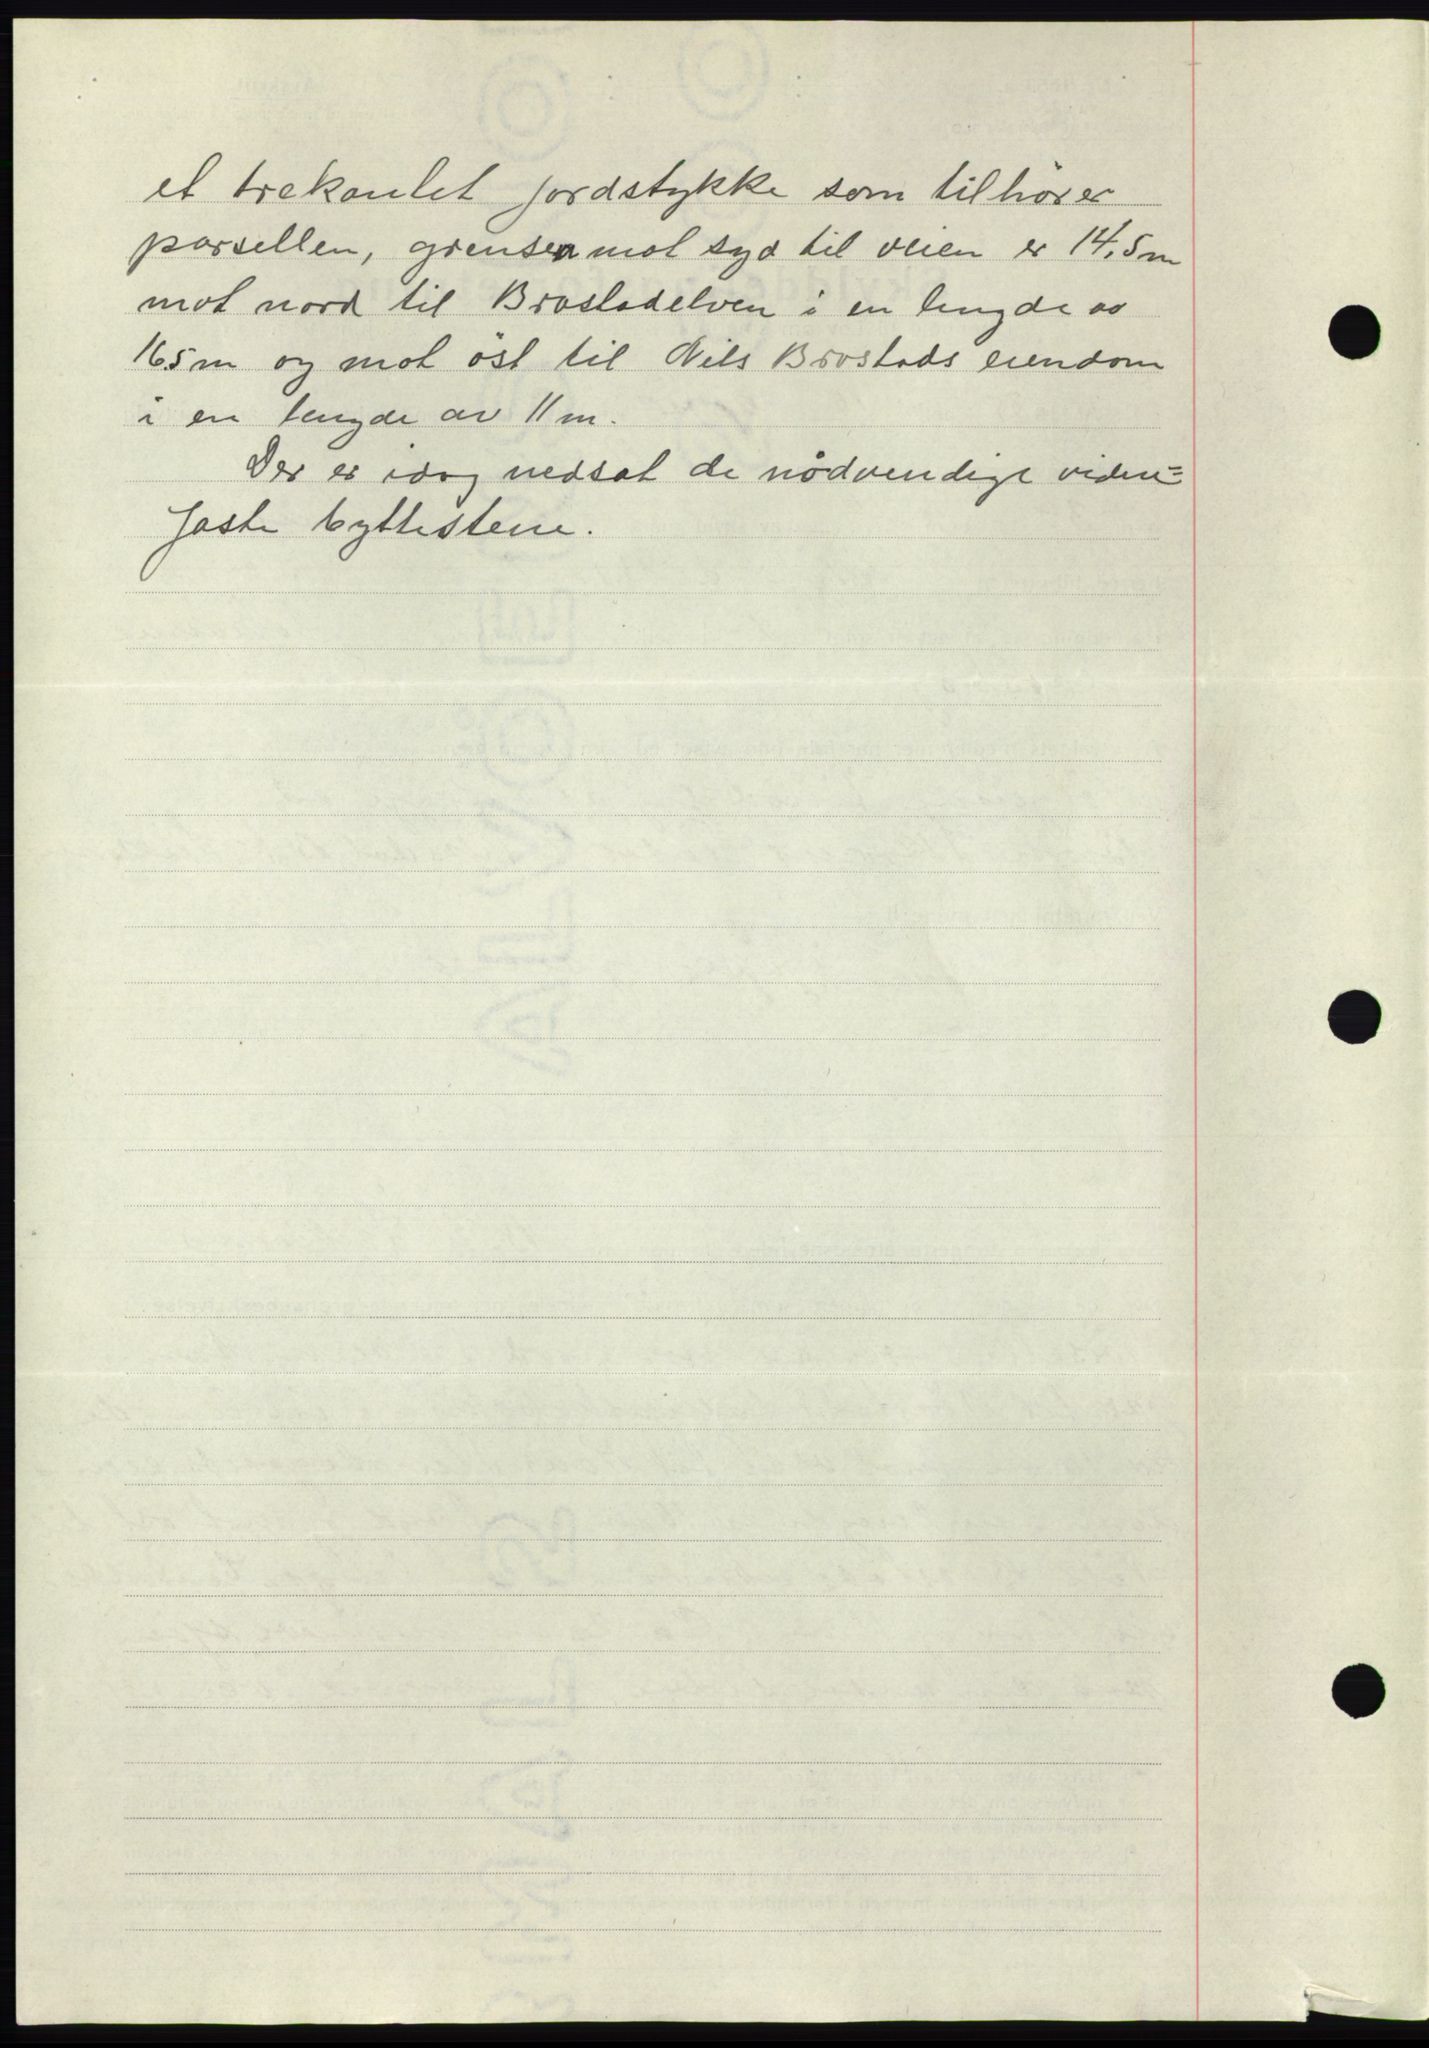 et trekantet jordstykke som tilhörer
parsellen, grensen mot syd til veien er 14,5 m
mot nord til Brostadelven i en lengde av
16,5 m og mot öst til Nils Brostads eiendom
i en lengde av 11 m.
Der er idag nedsat de nödvendige viden=
faste byttestene.